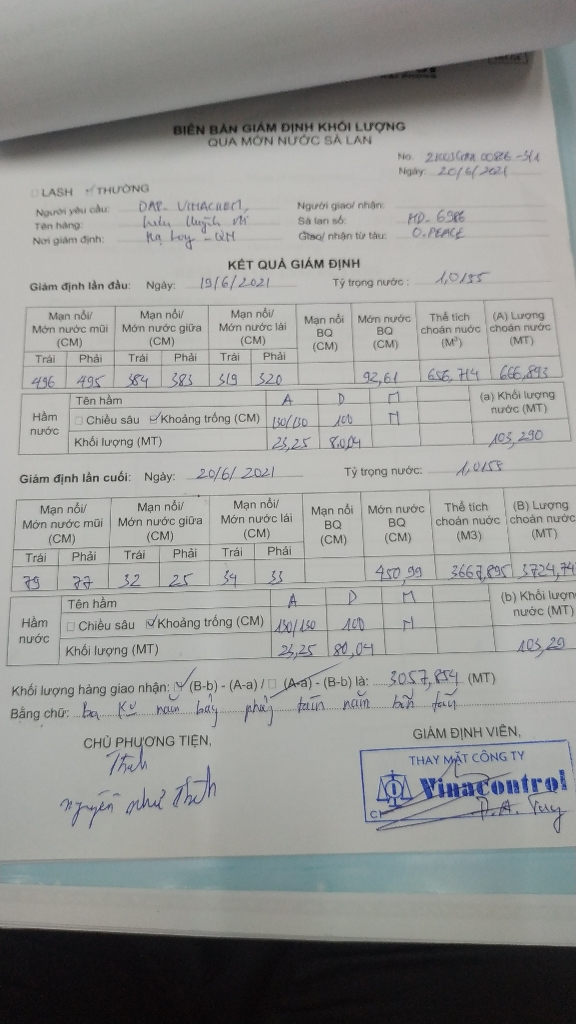 BIÊN BẢN GIÁM ĐỊNH KHỐI LƯỢNG
QUA MỚN NƯỚC SÀ LAN
No:
Ngày: 20/6/2021
LASH THƯỜNG
Người yêu cầu: DAP- VINACHEM, Người giao/ nhận:
Tên hàng: lưu huỳnh Sà lan số: HD- 6986
Nơi giám định: Hạ Long - QN Giao/ nhận từ tàu: O.PEACE
KẾT QUẢ GIÁM ĐỊNH
Giám định lần đầu: Ngày: 19/6/2021 Tỷ trọng nước: 1,0155
Mạn nổi/ Mớn nước mũi (CM) Mạn nổi/ Mớn nước giữa (CM) Mạn nổi/ Mớn nước lái (CM) Mạn nổi BQ (CM) Mớn nước BQ (CM) Thể tích choán nước (M³) (A) Lượng choán nước (MT)
Trái Phải Trái Phải Trái Phải
496 495 384 383 319 320 92,61 656,714 666,893
Hầm nước Tên hầm A D M (a) Khối lượng nước (MT)
Chiều sâu Khoảng trống (CM) 130/130 100 M
Khối lượng (MT) 23,25 80,04 103,290
Giám định lần cuối: Ngày: 20/6/2021 Tỷ trọng nước: 1,0155
Mạn nổi/ Mớn nước mũi (CM) Mạn nổi/ Mớn nước giữa (CM) Mạn nổi/ Mớn nước lái (CM) Mạn nổi BQ (CM) Mớn nước BQ (CM) Thể tích choán nước (M3) (B) Lượng choán nước (MT)
Trái Phải Trái Phải Trái Phải
79 77 32 25 34 33 450,99 3667,895 3724,74
Hầm nước Tên hầm A D M (b) Khối lượng nước (MT)
Chiều sâu Khoảng trống (CM) 130/130 100 M
Khối lượng (MT) 23,25 80,04 103,29
Khối lượng hàng giao nhận: (B-b) - (A-a) / (A-a) - (B-b) là: 3057,854 (MT)
Bằng chữ: Ba năm bảy phẩy tám năm bốn tấn
CHỦ PHƯƠNG TIỆN, GIÁM ĐỊNH VIÊN,
Thinh THAY MẶT CÔNG TY
Vinacontrol
Nguyễn Như Thinh